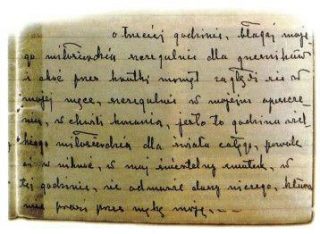 o trzeciej godzinie, błagaj moje-
go miłosierdzia szczególnie dla grzeszników
i choć przez krótki moment zagłębiaj się w
mojej męce, szczególnie w mojem opuszcze-
niu, w chwili konania, jest to godzina wiel
kiego miłosierdzia dla świata całego, pozwolę
ci wniknąć, w mój śmiertelny smutek, w
tej godzinie, nie odmówię duszy niczego, która
mnie prosi przez mękę moją. –